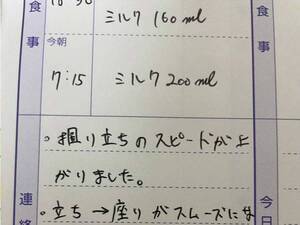 食事
ミルク 160ml
今朝
7:15 ミルク 200ml
。掴り立ちのスピードが上
がりました。
。立ち→座りがスムーズにな
連絡
食
今日